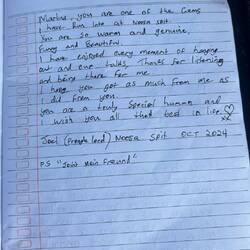 Martina, you are one of the Gems
I have run into at Noosa spit.
You are so warm and genuine,
Funny and Beautiful.
I have enjoyed every moment of hanging
out and our talks, Thanks for listening
and being there for me.
I hope you got as much from me as
I did from you.
you are a truly special human and
I wish you all the best in life. ♡
xx
Joel (people lead) Noosa Spit OCT 2024
P.S "Joint Mein Freund"